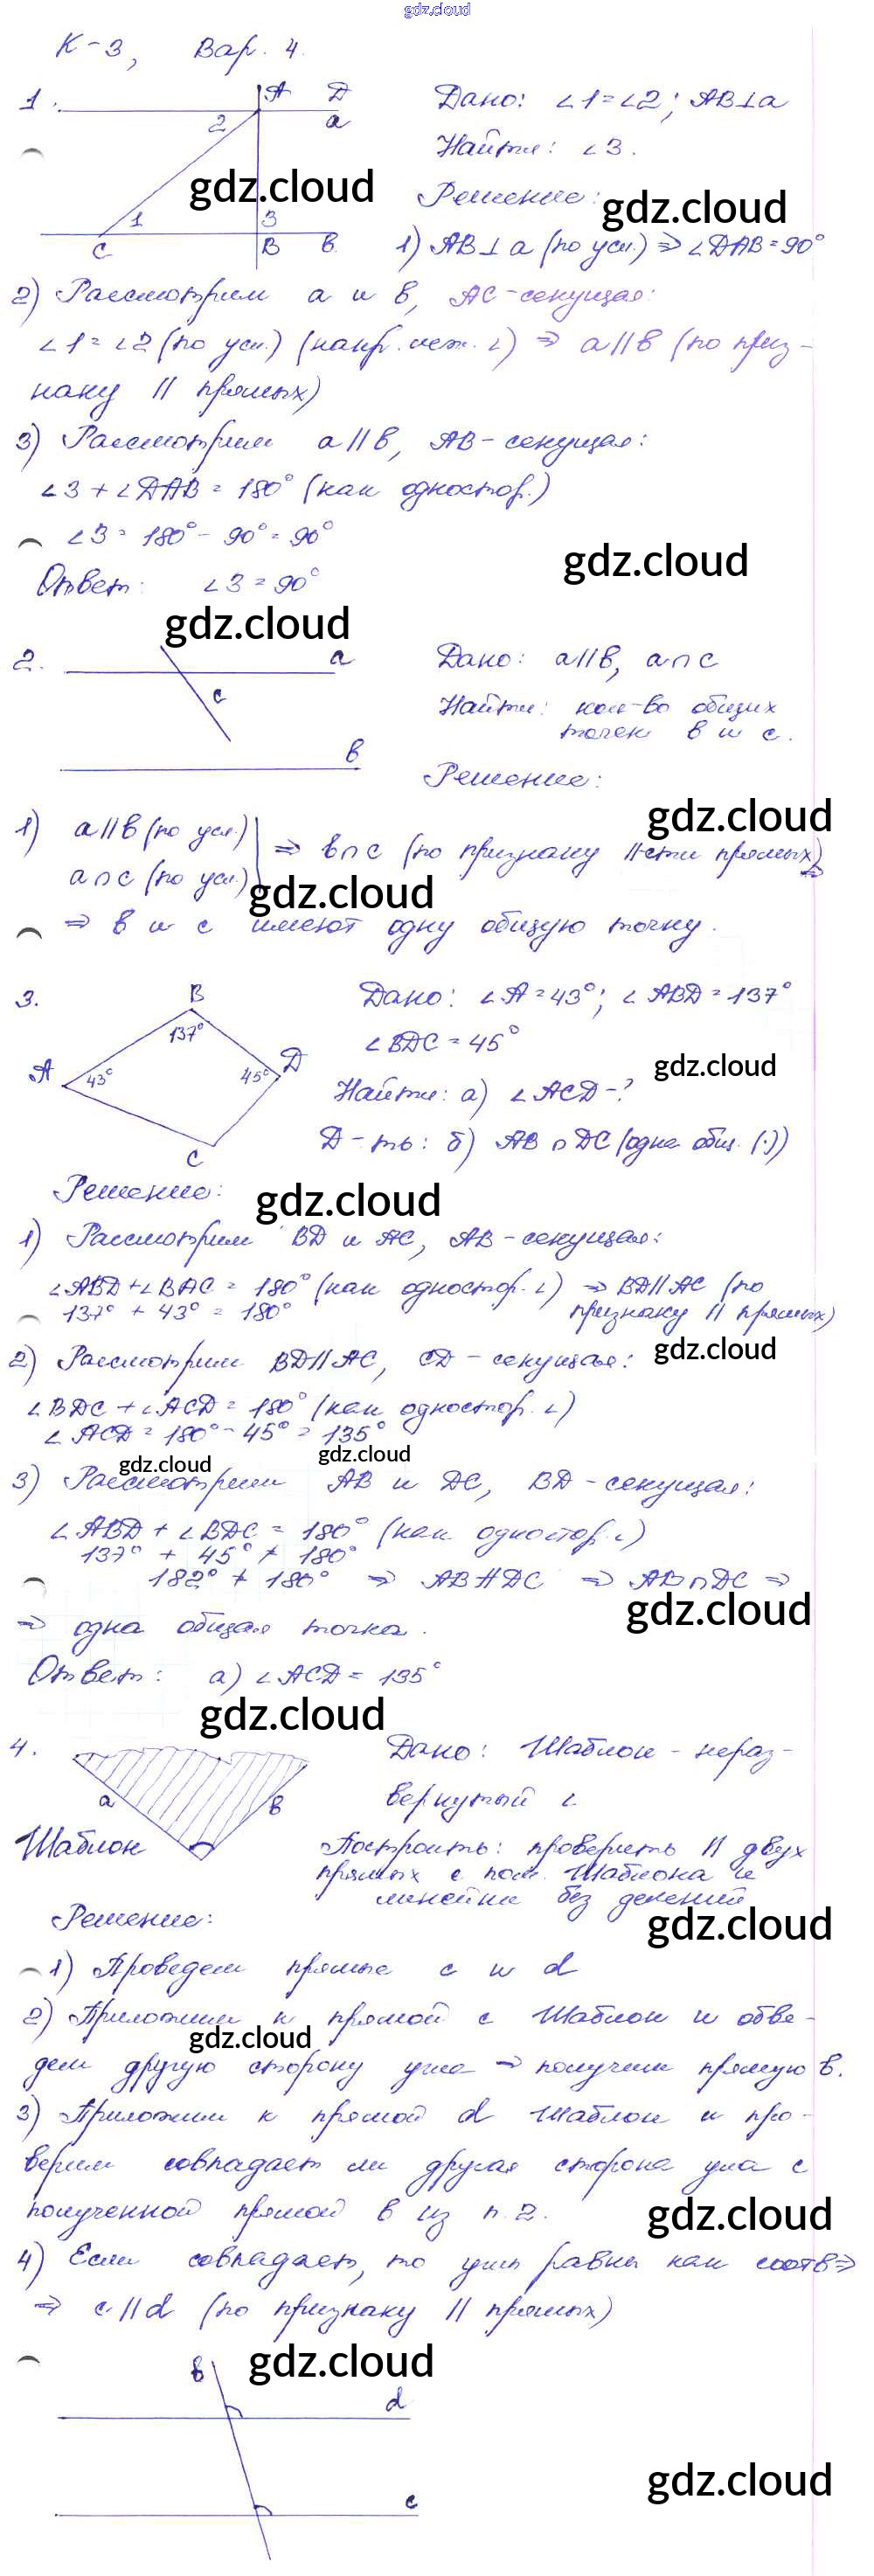 gdz.cloud
К-3, Вар. 4.
1. A D
2 a
1 3
C B в
Дано: ∠1=∠2; AB⊥a
Найти: ∠3.
gdz.cloud
Решение:
gdz.cloud
1) AB⊥a (по усл.) ⇒ ∠DAB=90°
2) Рассмотрим a и в, AC-секущая:
∠1=∠2 (по усл.) (накр. леж. ∠) ⇒ a∥в (по приз-
наку ∥ прямых)
3) Рассмотрим a∥в, AB-секущая:
∠3+∠DAB=180° (как одностор.)
∠3=180°-90°=90°
gdz.cloud
Ответ: ∠3=90°
gdz.cloud
2. a
c
в
Дано: a∥в, a∩c
Найти: кол-во общих
точек в и c.
Решение:
gdz.cloud
1) a∥в (по усл.)
a∩c (по усл.) ⇒ в∩c (по признаку ∥сти прямых) ⇒
gdz.cloud
⇒ в и c имеют одну общую точку.
3. B
137°
A 43° 45° D
C
Дано: ∠A=43°; ∠ABD=137°
∠BDC=45°
gdz.cloud
Найти: а) ∠ACD-?
Д-ть: б) AB∩DC (одна общ. (·))
Решение:
gdz.cloud
1) Рассмотрим BD и AC, AB-секущая:
∠ABD+∠BAC=180° (как одностор. ∠) ⇒ BD∥AC (по
137°+43°=180° признаку ∥ прямых)
2) Рассмотрим BD∥AC, CD-секущая:
gdz.cloud
∠BDC+∠ACD=180° (как одностор. ∠)
∠ACD=180°-45°=135°
gdz.cloud gdz.cloud
3) Рассмотрим AB и DC, BD-секущая:
∠ABD+∠BDC=180° (как одностор. ∠)
137°+45°≠180°
182°≠180° ⇒ AB∦DC ⇒ AB∩DC ⇒
gdz.cloud
⇒ одна общая точка.
Ответ: а) ∠ACD=135°
gdz.cloud
4.
a в
Шаблон
Дано: Шаблон-нераз-
вернутый ∠
Построить: проверить ∥ двух
прямых с пом. Шаблона и
линейки без делений
gdz.cloud
Решение:
1) Проведем прямые c и d
2) Приложим к прямой c Шаблон и обве-
gdz.cloud
дем другую сторону угла ⇒ получим прямую в.
3) Приложим к прямой d Шаблон и про-
верим совпадает ли другая сторона угла с
полученной прямой в из п.2.
gdz.cloud
4) Если совпадает, то углы равны как соотв ⇒
⇒ c∥d (по признаку ∥ прямых)
gdz.cloud
в
d
gdz.cloud
c